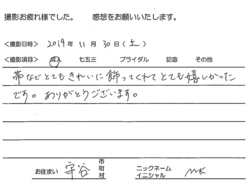 撮影お疲れ様でした。　感想をお願いいたします。
<撮影日時> 2019 年 11 月 30 日 ( 土 )
<撮影項目> 成人 七五三 ブライダル 記念 その他
帯などとてもきれいに飾ってくれてとても嬉しかった
です。ありがとうございます。
お住まい 守谷 市町村 ニックネーム イニシャル MK